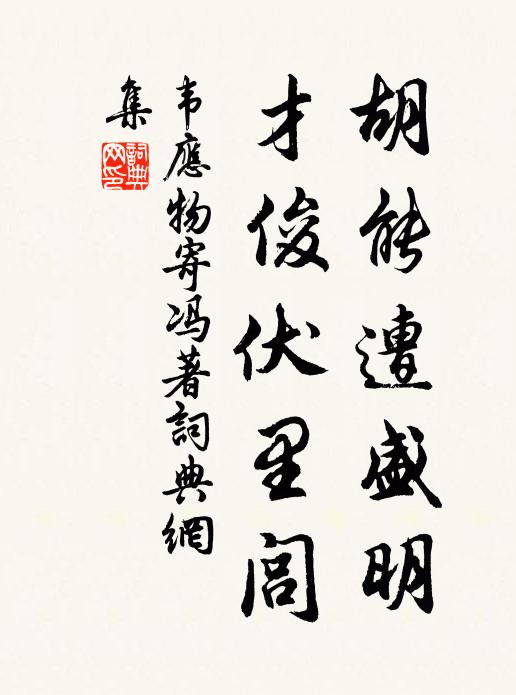 胡能遭盛明
才俊伏里闾
韦應物寄冯著詞典網
集
詞典
网印